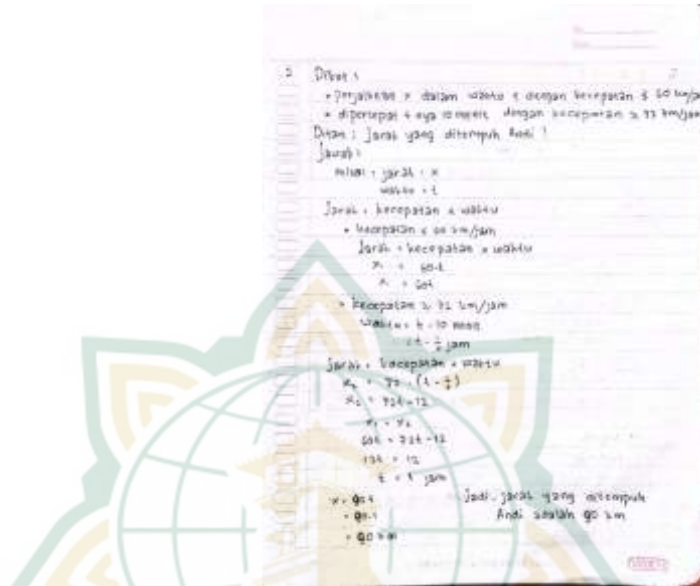 2 Diket :
• perjalanan x dalam waktu t dengan kecepatan = 60 km/ja
• dipercepat t nya 10 menit dengan kecepatan = 72 km/jam
Ditan : Jarak yang ditempuh Andi ?
Jawab :
misal : jarak = x
waktu = t
Jarak = kecepatan x waktu
• kecepatan = 60 km/jam
Jarak = kecepatan x waktu
x₁ = 60.t
x₁ = 60t
• kecepatan = 72 km/jam
waktu = t - 10 menit
= t - jam
Jarak = kecepatan x waktu
x₂ = 72 . (t - )
x₂ = 72t - 12
x₁ = x₂
60t = 72t - 12
12t = 12
t = 1 jam
x = 90.t
= 90.1
= 90 km
Jadi, jarak yang ditempuh
Andi adalah 90 km